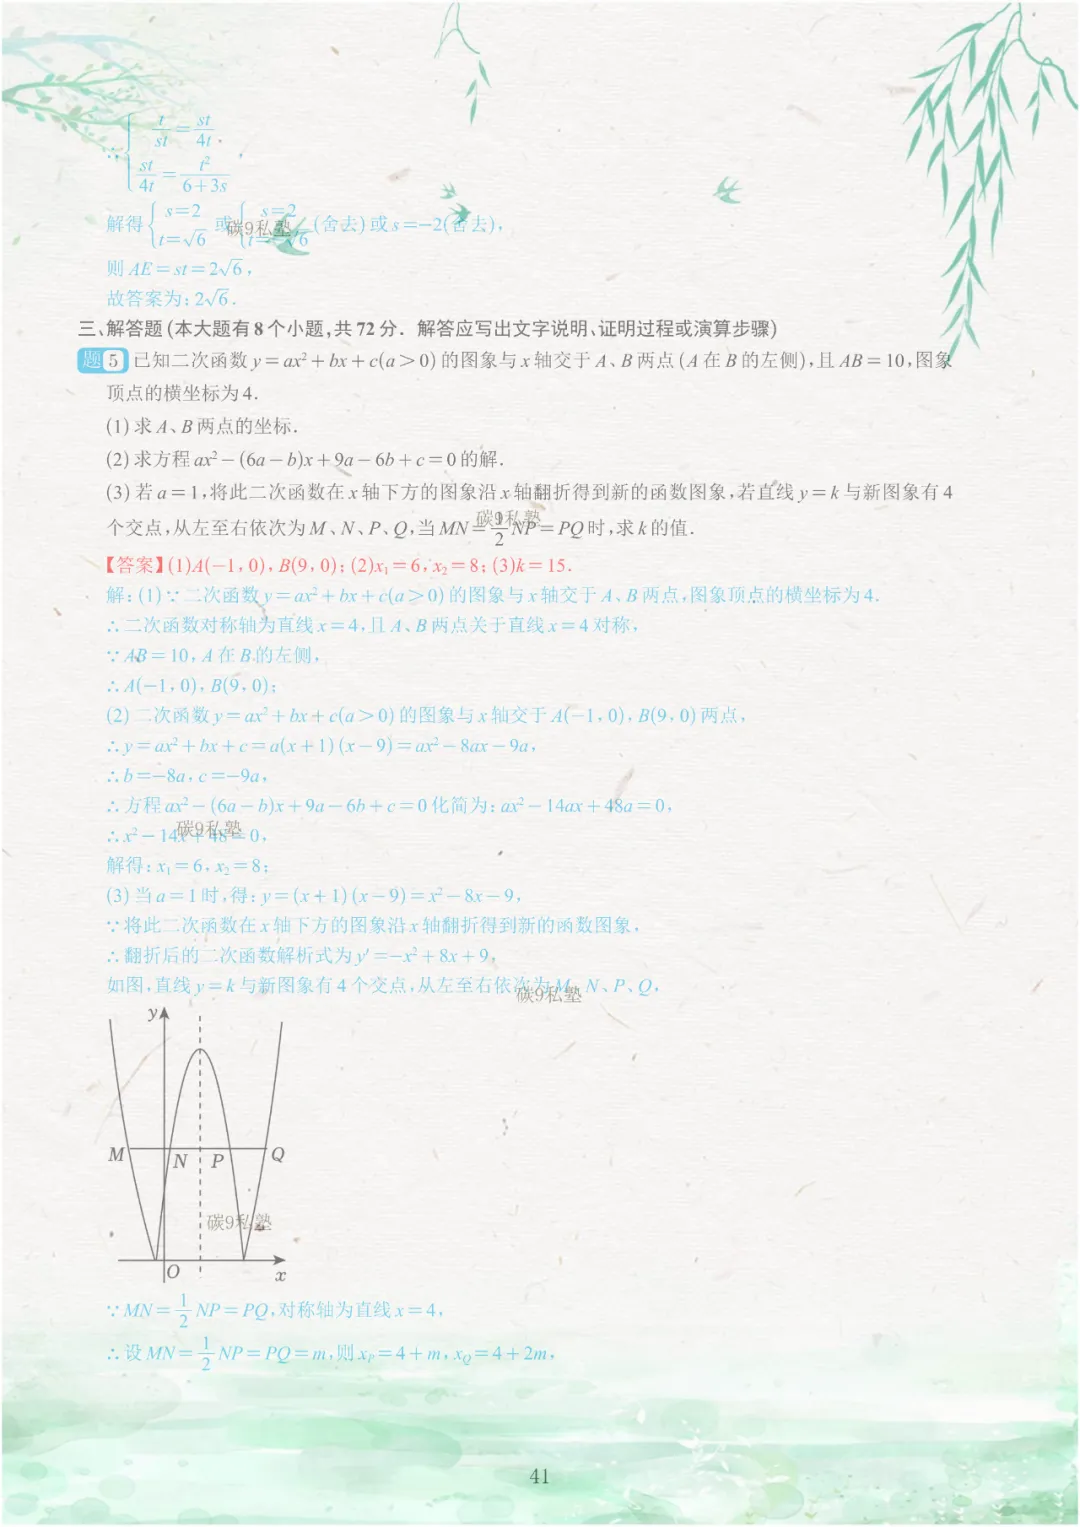 ∴{t/st=st/4t, st/4t=t²/(6+3s),
解得{s=2 t=√6 或{s=2 t=-√6(舍去)或s=-2(舍去),
碳9私塾
则AE=st=2√6,
故答案为:2√6.
三、解答题(本大题有8个小题,共72分. 解答应写出文字说明、证明过程或演算步骤)
题5 已知二次函数y=ax²+bx+c(a>0)的图象与x轴交于A、B两点(A在B的左侧),且AB=10,图象
顶点的横坐标为4.
(1)求A、B两点的坐标.
(2)求方程ax²-(6a-b)x+9a-6b+c=0的解.
(3)若a=1,将此二次函数在x轴下方的图象沿x轴翻折得到新的函数图象,若直线y=k与新图象有4
个交点,从左至右依次为M、N、P、Q,当MN=1/2NP=PQ时,求k的值.
碳9私塾
【答案】(1)A(-1,0),B(9,0);(2)x₁=6,x₂=8;(3)k=15.
解:(1)∵二次函数y=ax²+bx+c(a>0)的图象与x轴交于A、B两点,图象顶点的横坐标为4.
∴二次函数对称轴为直线x=4,且A、B两点关于直线x=4对称,
∵AB=10,A在B的左侧,
∴A(-1,0),B(9,0);
(2)二次函数y=ax²+bx+c(a>0)的图象与x轴交于A(-1,0),B(9,0)两点,
∴y=ax²+bx+c=a(x+1)(x-9)=ax²-8ax-9a,
∴b=-8a,c=-9a,
∴方程ax²-(6a-b)x+9a-6b+c=0化简为:ax²-14ax+48a=0,
∴x²-14x+48=0,
碳9私塾
解得:x₁=6,x₂=8;
(3)当a=1时,得:y=(x+1)(x-9)=x²-8x-9,
∵将此二次函数在x轴下方的图象沿x轴翻折得到新的函数图象,
∴翻折后的二次函数解析式为y′=-x²+8x+9,
如图,直线y=k与新图象有4个交点,从左至右依次为M、N、P、Q,
碳9私塾
y
M N P Q
碳9私塾
O x
∵MN=1/2NP=PQ,对称轴为直线x=4,
∴设MN=1/2NP=PQ=m,则x_P=4+m,x_Q=4+2m,
41